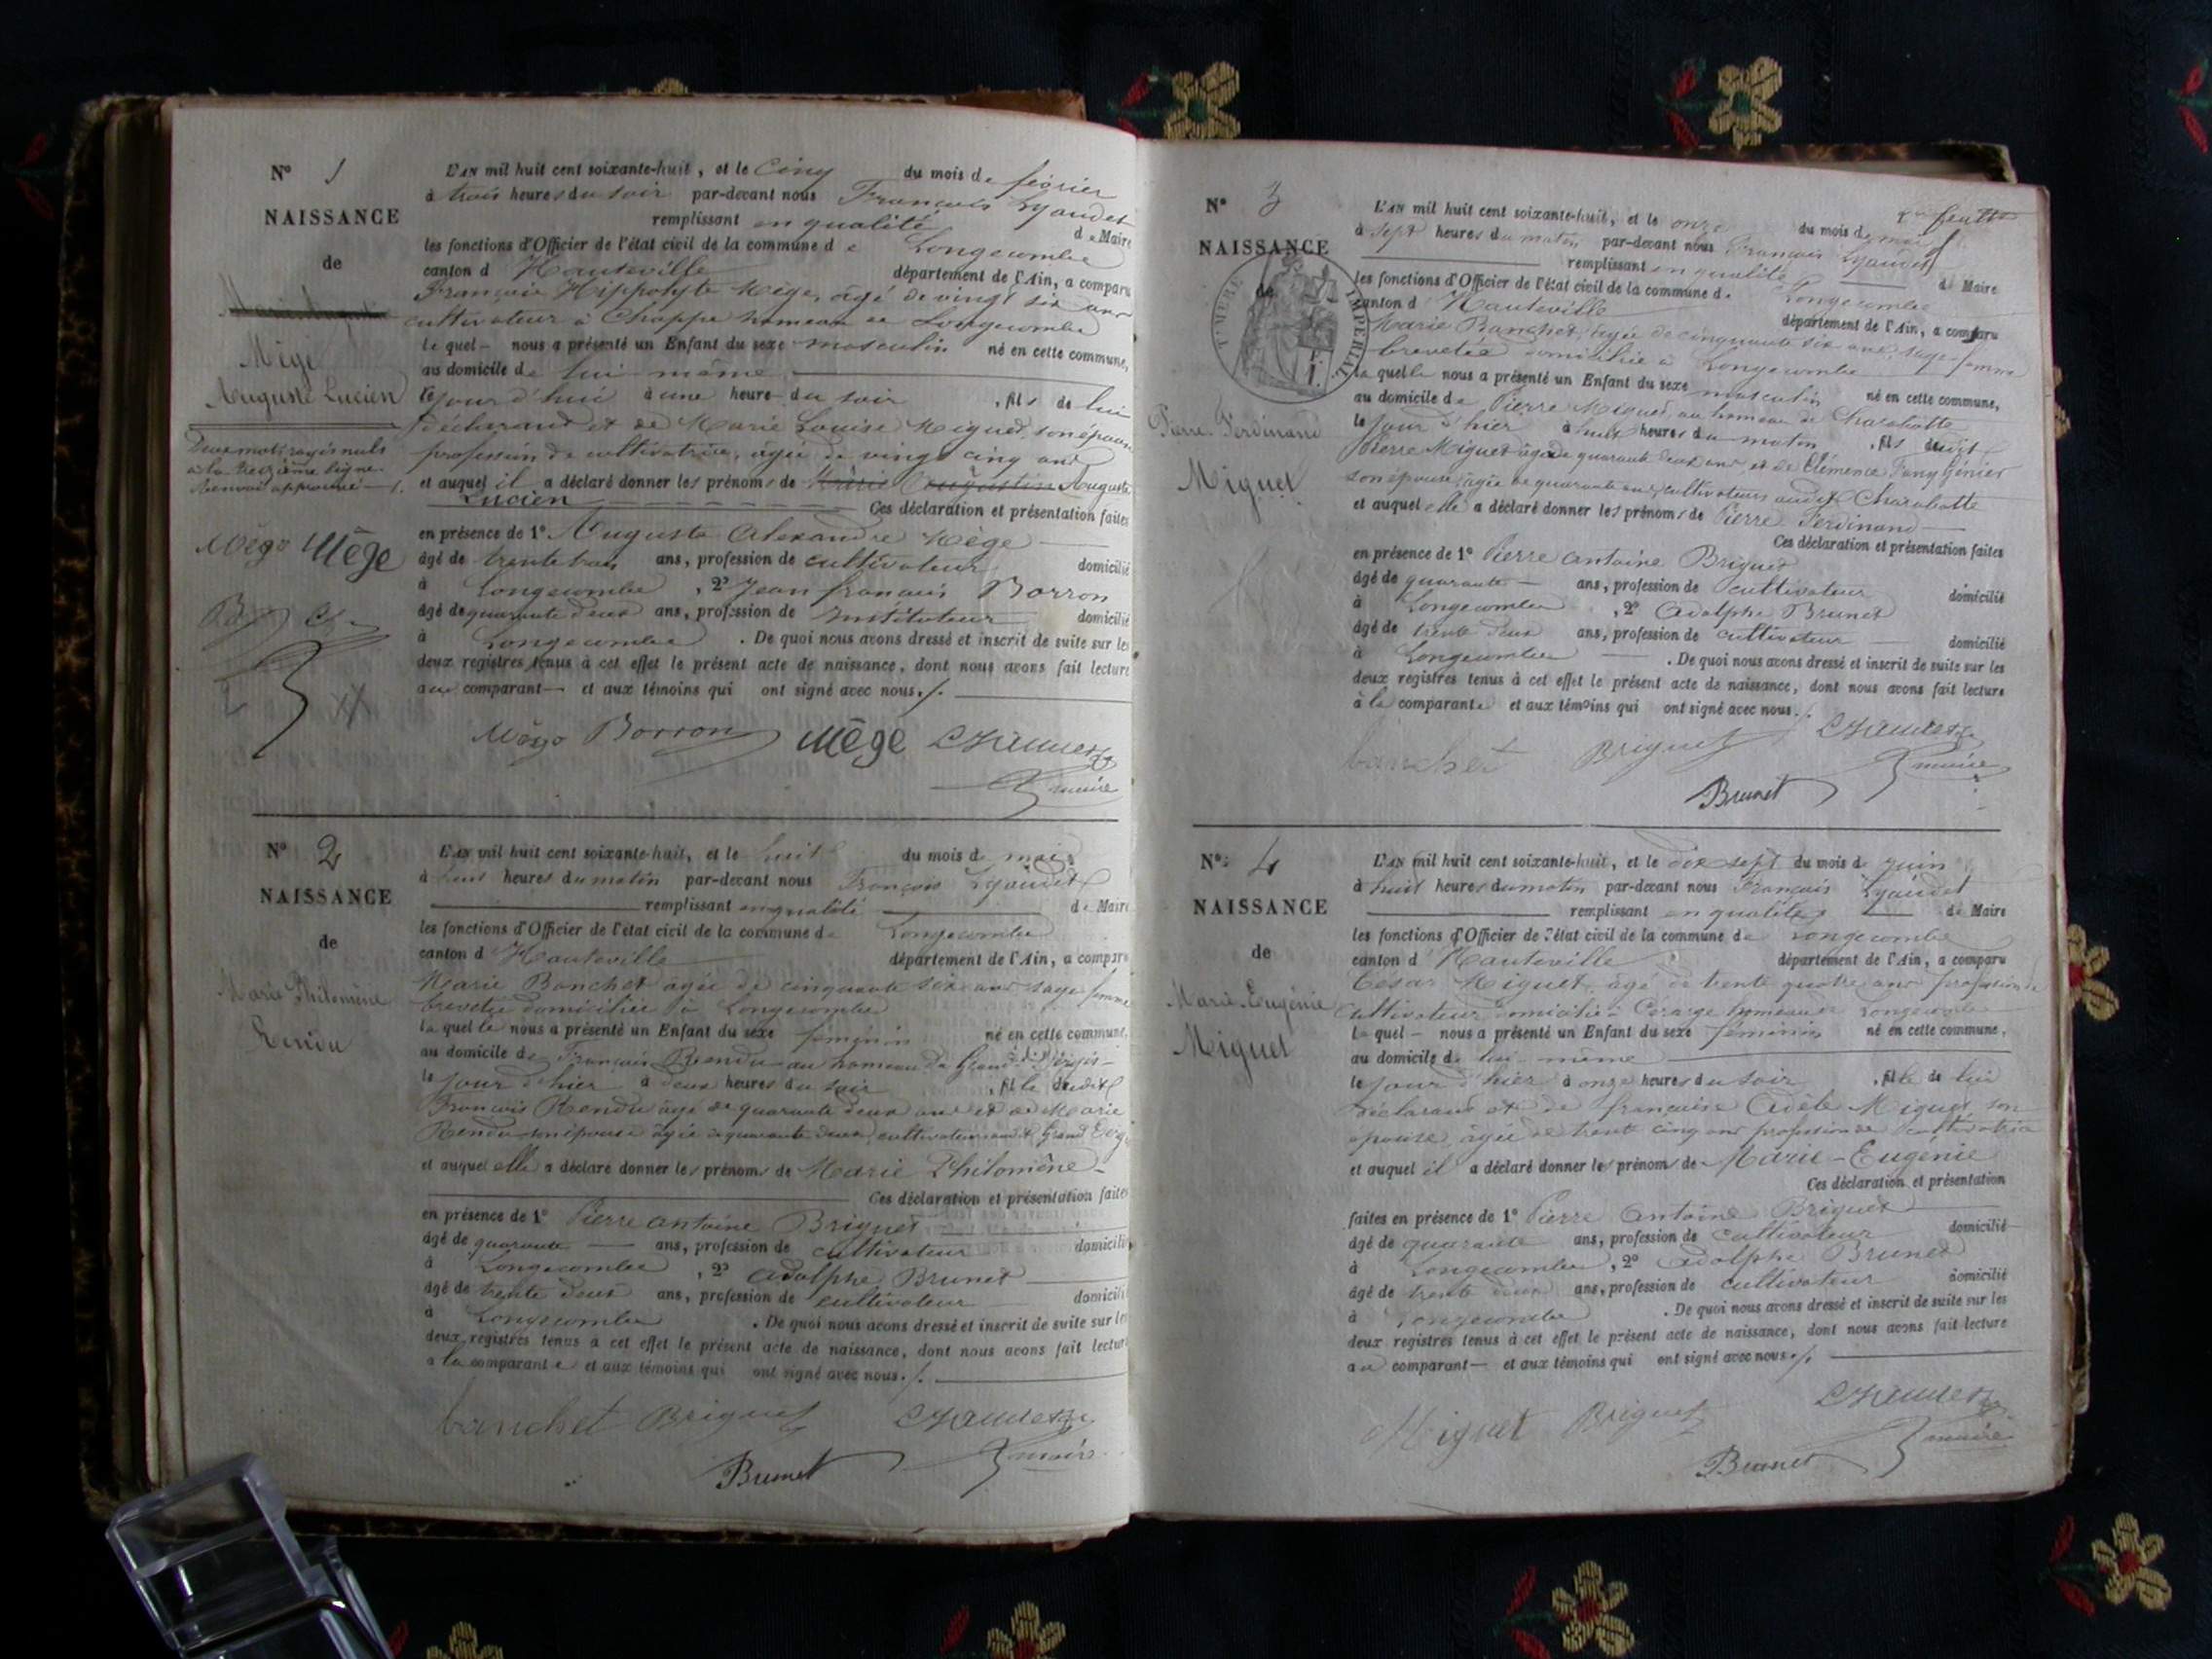 N° 1
NAISSANCE
de
Mège
Auguste Lucien
Deux mots rayés nuls
à la treizième ligne.
Renvoi approuvé
Mège Mège
L'AN mil huit cent soixante-huit, et le Cinq du mois de février
à trois heures du soir par-devant nous François Lyaudet
remplissant en qualité de Maire
les fonctions d'Officier de l'état civil de la commune de Longecombe
canton d'Hauteville département de l'Ain, a comparu
François Hippolyte Mège, âgé de vingt six ans
cultivateur à Chappe hameau de Longecombe
le quel – nous a présenté un Enfant du sexe masculin né en cette commune,
au domicile de lui même
le jour d'hui à une heure du soir , fils de lui
déclarant et de Marie Louise Miguet, son épouse
profession de cultivatrice, âgée de vingt cinq ans
et auquel il a déclaré donner les prénoms de Marie Augustin Auguste
Lucien Ces déclaration et présentation faites
en présence de 1° Auguste Alexandre Mège
âgé de trente trois ans, profession de cultivateur domicilié
à Longecombe , 2° Jean François Borron
âgé de quarante deux ans, profession de Instituteur domicilié
à Longecombe . De quoi nous avons dressé et inscrit de suite sur les
deux registres tenus à cet effet le présent acte de naissance, dont nous avons fait lecture
au comparant – et aux témoins qui ont signé avec nous ./.
Mège Borron Mège Lyaudet
maire
N° 2
NAISSANCE
de
Marie Philomène
Rendu
L'AN mil huit cent soixante-huit, et le huit du mois de mai
à huit heures du matin par-devant nous François Lyaudet
remplissant en qualité de Maire
les fonctions d'Officier de l'état civil de la commune de Longecombe
canton d'Hauteville département de l'Ain, a comparu
Marie Banchet âgée de cinquante six ans sage femme
brevetée domiciliée à Longecombe
la quelle nous a présenté un Enfant du sexe féminin né en cette commune,
au domicile de François Rendu au hameau du Grand
le jour d'hier à deux heures du soir , fille dudit
François Rendu âgé de quarante deux ans et de Marie
Rendu son épouse âgée de quarante deux, cultivateurs audit Grand
et auquel elle a déclaré donner les prénoms de Marie Philomène –
Ces déclaration et présentation faites
en présence de 1° Pierre Antoine Briguet
âgé de quarante — ans, profession de cultivateur domicilié
à Longecombe , 2° Adolphe Brunet
âgé de trente deux ans, profession de cultivateur domicilié
à Longecombe . De quoi nous avons dressé et inscrit de suite sur les
deux registres tenus à cet effet le présent acte de naissance, dont nous avons fait lecture
à la comparante et aux témoins qui ont signé avec nous ./.
banchet Briguet Lyaudet
Brunet maire
N° 3
NAISSANCE
de
TIMBRE IMPERIAL
Pierre Ferdinand
Miguet
L'AN mil huit cent soixante-huit, et le onze du mois de mai
à sept heures du matin par-devant nous François Lyaudet
remplissant en qualité de Maire
les fonctions d'Officier de l'état civil de la commune de Longecombe
canton d'Hauteville département de l'Ain, a comparu
Marie Banchet, âgée de cinquante six ans, sage-femme
brevetée domiciliée à Longecombe
la quelle nous a présenté un Enfant du sexe masculin né en cette commune,
au domicile de Pierre Miguet, au hameau de Charabotte
le jour d'hier à huit heures du matin , fils dudit
Pierre Miguet âgé de quarante deux ans et de Clémence Fany Génier
son épouse, âgée de quarante ans, cultivateurs audit Charabotte
et auquel elle a déclaré donner les prénoms de Pierre Ferdinand
Ces déclaration et présentation faites
en présence de 1° Pierre Antoine Briguet
âgé de quarante — ans, profession de cultivateur domicilié
à Longecombe , 2° Adolphe Brunet
âgé de trente deux ans, profession de cultivateur domicilié
à Longecombe . De quoi nous avons dressé et inscrit de suite sur les
deux registres tenus à cet effet le présent acte de naissance, dont nous avons fait lecture
à la comparante et aux témoins qui ont signé avec nous ./.
banchet Briguet Lyaudet
Brunet maire
N° 4
NAISSANCE
de
Marie-Eugénie
Miguet
L'AN mil huit cent soixante-huit, et le dix sept du mois de juin
à huit heures du matin par-devant nous François Lyaudet
remplissant en qualité de Maire
les fonctions d'Officier de l'état civil de la commune de Longecombe
canton d'Hauteville département de l'Ain, a comparu
César Miguet, âgé de trente quatre ans profession de
cultivateur domicilié à hameau de Longecombe
le quel – nous a présenté un Enfant du sexe féminin né en cette commune,
au domicile de lui même
le jour d'hier à onze heures du soir , fille de lui
déclarant et de françoise Adèle Miguet, son
épouse, âgée de trente cinq ans profession de cultivatrice
et auquel il a déclaré donner les prénoms de Marie-Eugénie
Ces déclaration et présentation
faites en présence de 1° Pierre Antoine Briguet
âgé de quarante ans, profession de cultivateur domicilié
à Longecombe , 2° Adolphe Brunet
âgé de trente deux ans, profession de cultivateur domicilié
à Longecombe . De quoi nous avons dressé et inscrit de suite sur les
deux registres tenus à cet effet le présent acte de naissance, dont nous avons fait lecture
au comparant — et aux témoins qui ont signé avec nous ./.
Miguet Briguet Lyaudet
Brunet maire